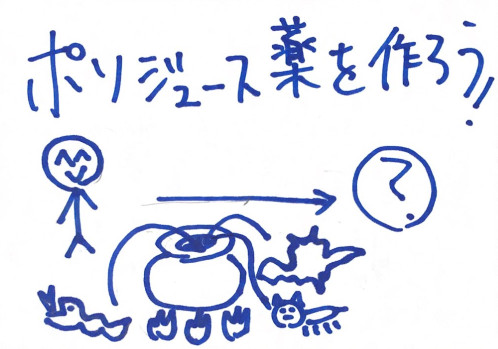 ポリジュース薬を作ろう!
?